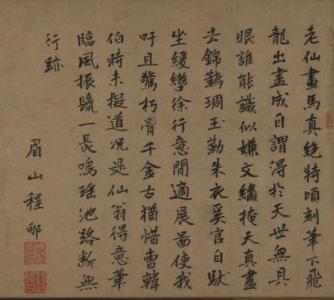 老仙畫馬真絶特頃刻筆下飛
龍出畫成自謂得於天世無具
眼誰能識似嫌文繡掩天真盡
去錦韉琱玉勒朱衣奚官自馱
坐緩轡徐行意閒適展圖使我
吁且驚朽骨千金古猶惜曹韓
伯時未擬道況是仙翁得意筆
臨風振鬣一長鳴瑤池路斷無
行跡
眉山程郇